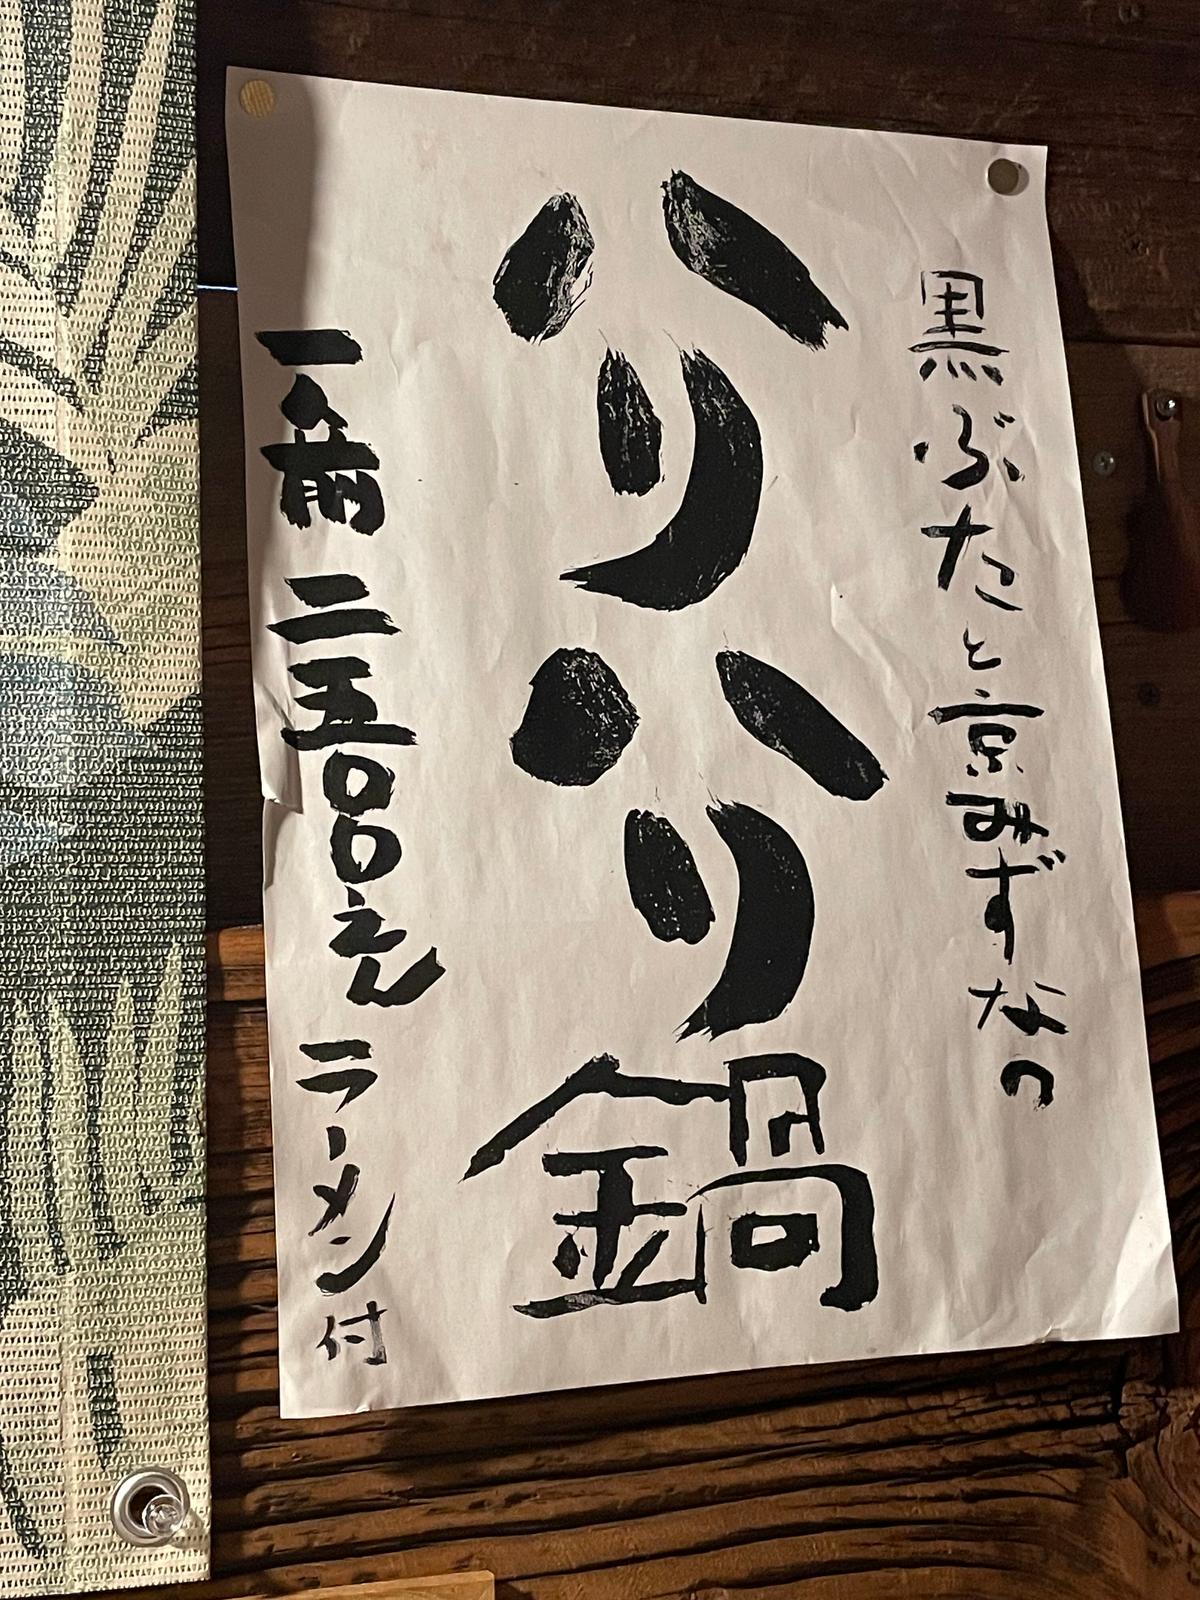 黒ぶたと京みずなの
ハリハリ鍋
一人前 二五〇〇えん ラーメン付